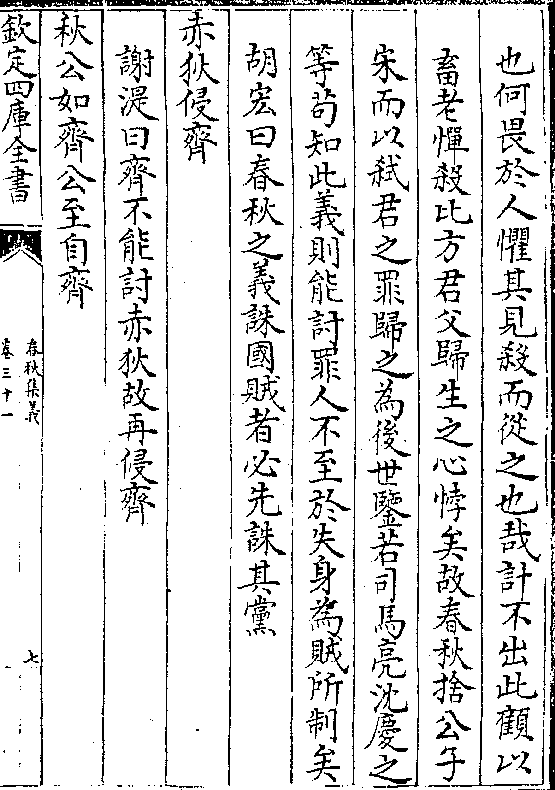 也何畏於人懼其見殺而從之也哉計不出此顧以
畜老憚殺比方君父歸生之心悖矣故春秋捨公子
宋而以弑君之罪歸之為後世鑒若司馬亮沈慶之
等苟知此義則能討罪人不至於失身為賊所制矣
胡宏曰春秋之義誅國賊者必先誅其黨
赤狄侵齊
謝湜曰齊不能討赤狄故再侵齊
秋公如齊公至自齊
欽定四庫全書
春秋集義
卷三十一
七